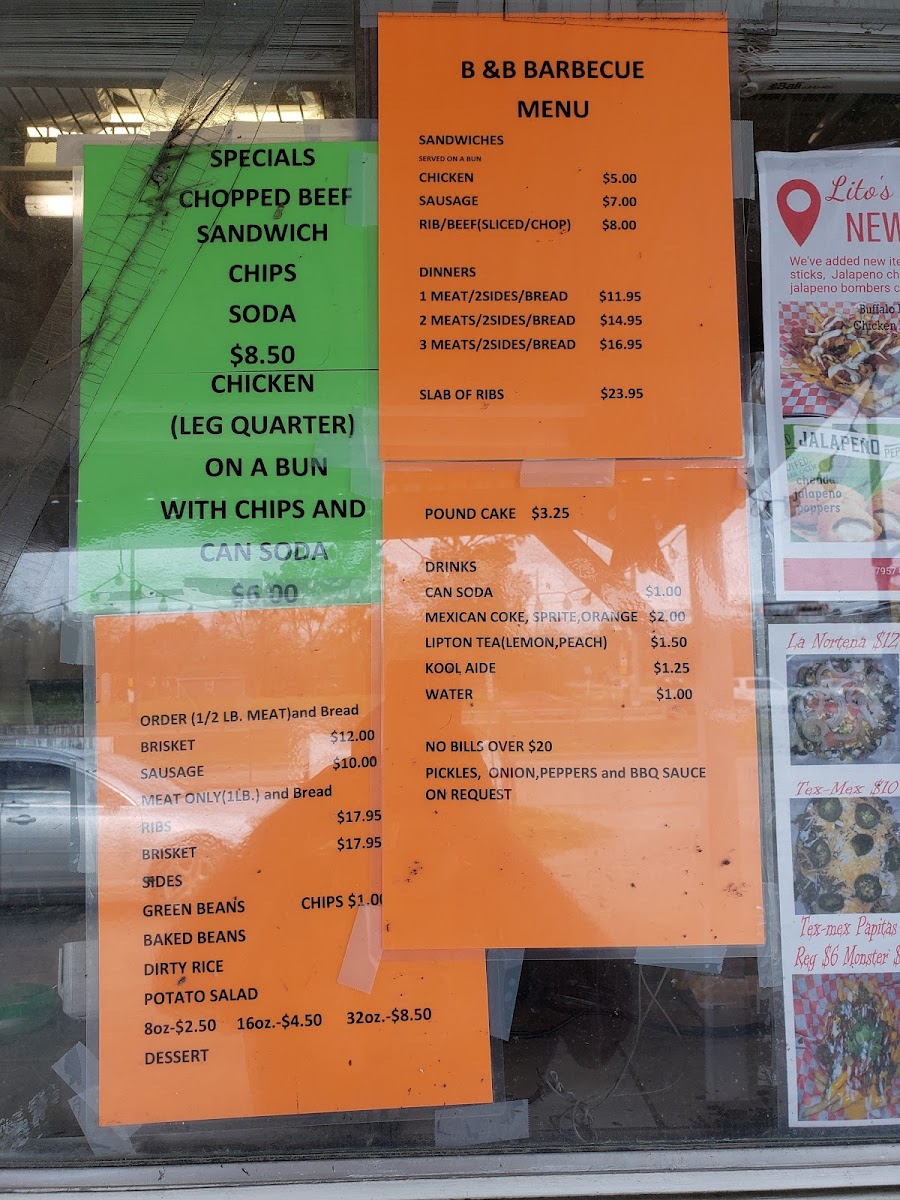 SPECIALS
CHOPPED BEEF
SANDWICH
CHIPS
SODA
$8.50
CHICKEN
(LEG QUARTER)
ON A BUN
WITH CHIPS AND
CAN SODA
$6.00
B &B BARBECUE
MENU
SANDWICHES
SERVED ON A BUN
CHICKEN $5.00
SAUSAGE $7.00
RIB/BEEF(SLICED/CHOP) $8.00
DINNERS
1 MEAT/2SIDES/BREAD $11.95
2 MEATS/2SIDES/BREAD $14.95
3 MEATS/2SIDES/BREAD $16.95
SLAB OF RIBS $23.95
POUND CAKE $3.25
DRINKS
CAN SODA $1.00
MEXICAN COKE, SPRITE,ORANGE $2.00
LIPTON TEA(LEMON,PEACH) $1.50
KOOL AIDE $1.25
WATER $1.00
NO BILLS OVER $20
PICKLES, ONION,PEPPERS and BBQ SAUCE
ON REQUEST
ORDER (1/2 LB. MEAT)and Bread
BRISKET $12.00
SAUSAGE $10.00
MEAT ONLY(1LB.) and Bread
RIBS $17.95
BRISKET $17.95
SIDES
GREEN BEANS CHIPS $1.00
BAKED BEANS
DIRTY RICE
POTATO SALAD
8oz-$2.50 16oz.-$4.50 32oz.-$8.50
DESSERT
Lito's
NEW
We've added new ite
sticks, Jalapeno ch
jalapeno bombers c
Buffalo
Chicken
JALAPEÑO
cheddar
jalapeno
poppers
7957
La Nortena $12
Tex-Mex $10
Tex-mex Papitas
Reg $6 Monster $